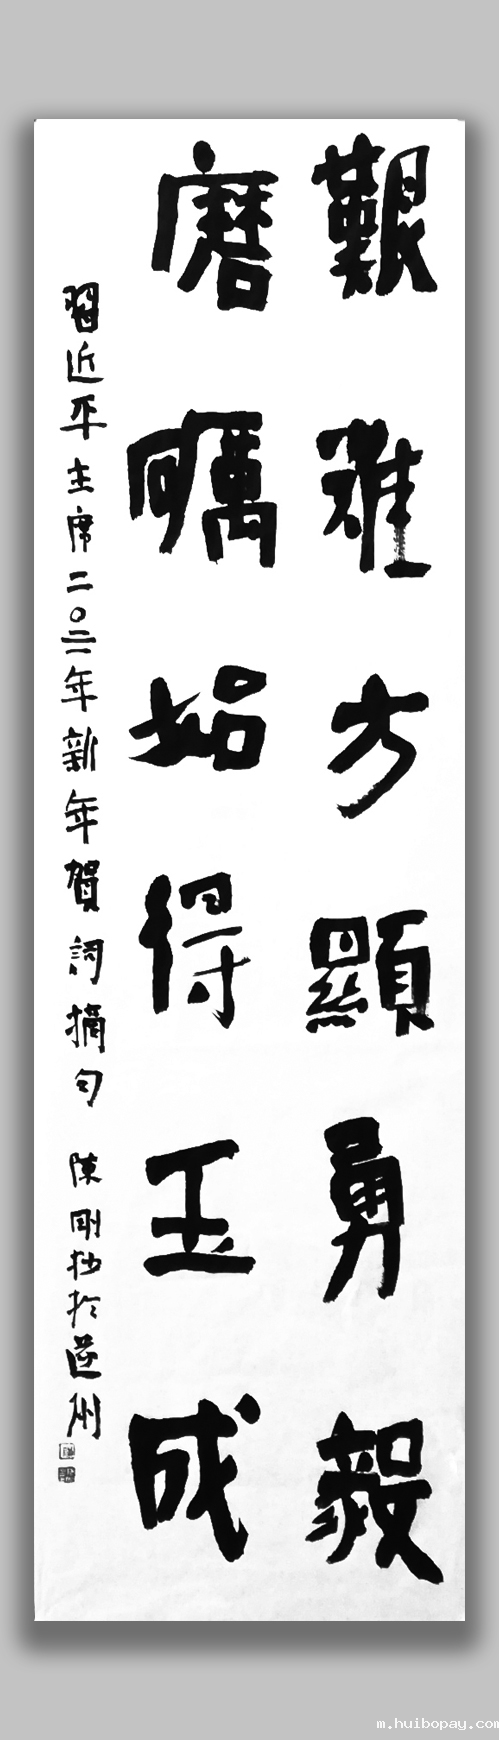 艱难方顯勇毅
磨礪始得玉成
習近平主席二〇二一年新年賀詞摘句 陳剛抄於州
m.huibopay.com